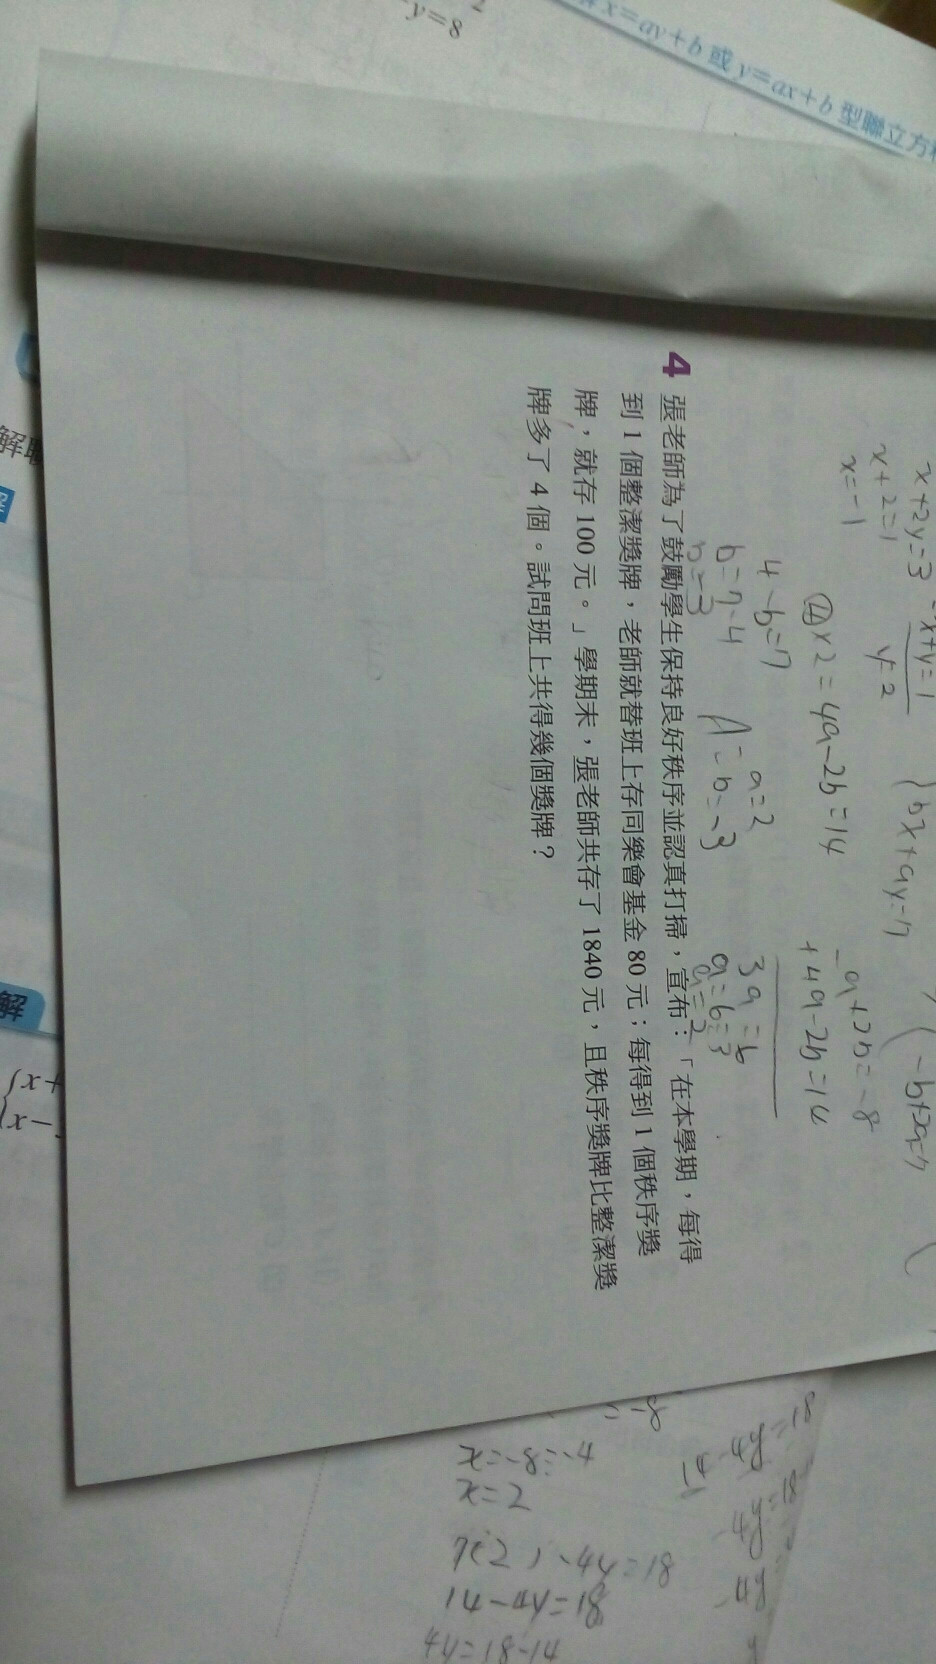 y=8
x=ay+b 或 y=ax+b 型聯立方
x+2y=3
x+2=1
x=-1
-x+y=1
y=2
bx+ay=7
-b+2a=7
④×2=4a-2b=14
-a+2b=-8
+4a-2b=14
4-b=7
b=7-4
b=-3
a=2
A=b=-3
3a=6
a=6÷3
a=2
4 張老師為了鼓勵學生保持良好秩序並認真打掃，宣布：「在本學期，每得
到 1 個整潔獎牌，老師就替班上存同樂會基金 80 元；每得到 1 個秩序獎
牌，就存 100 元。」學期末，張老師共存了 1840 元，且秩序獎牌比整潔獎
牌多了 4 個。試問班上共得幾個獎牌？
解
解
x=-8÷-4
x=2
7(2)-4y=18
14-4y=18
4y=18-14